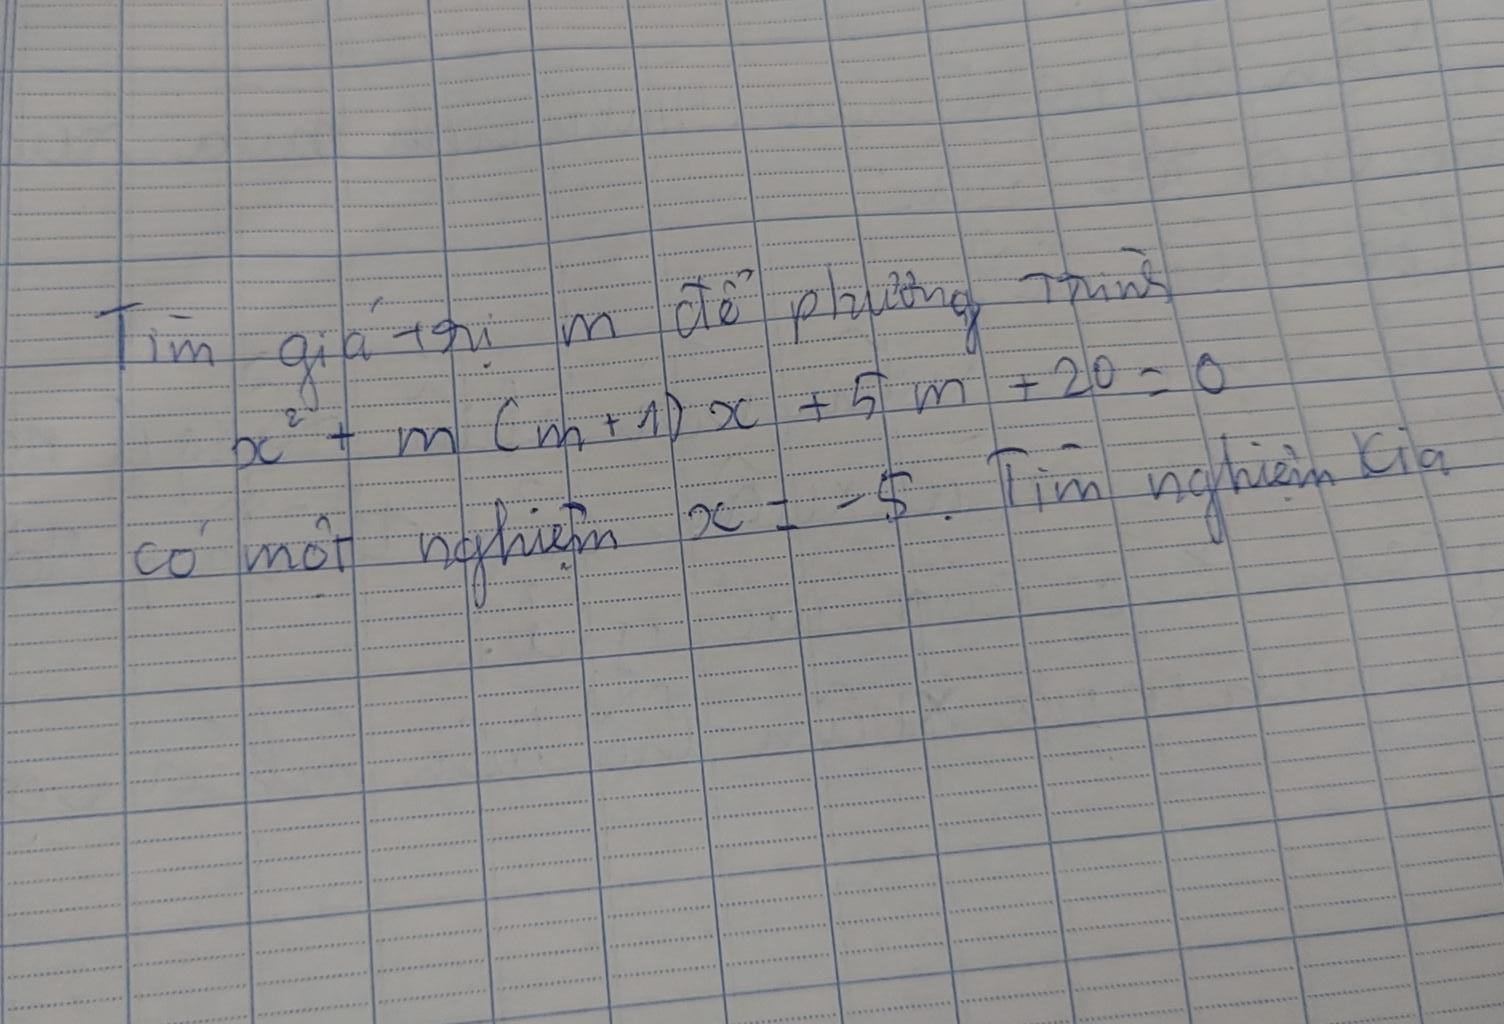 Tìm giá trị m để phương trình
x² + m (m + 1) x + 5 m + 20 = 0
có một nghiệm x = - 5. Tìm nghiệm kia